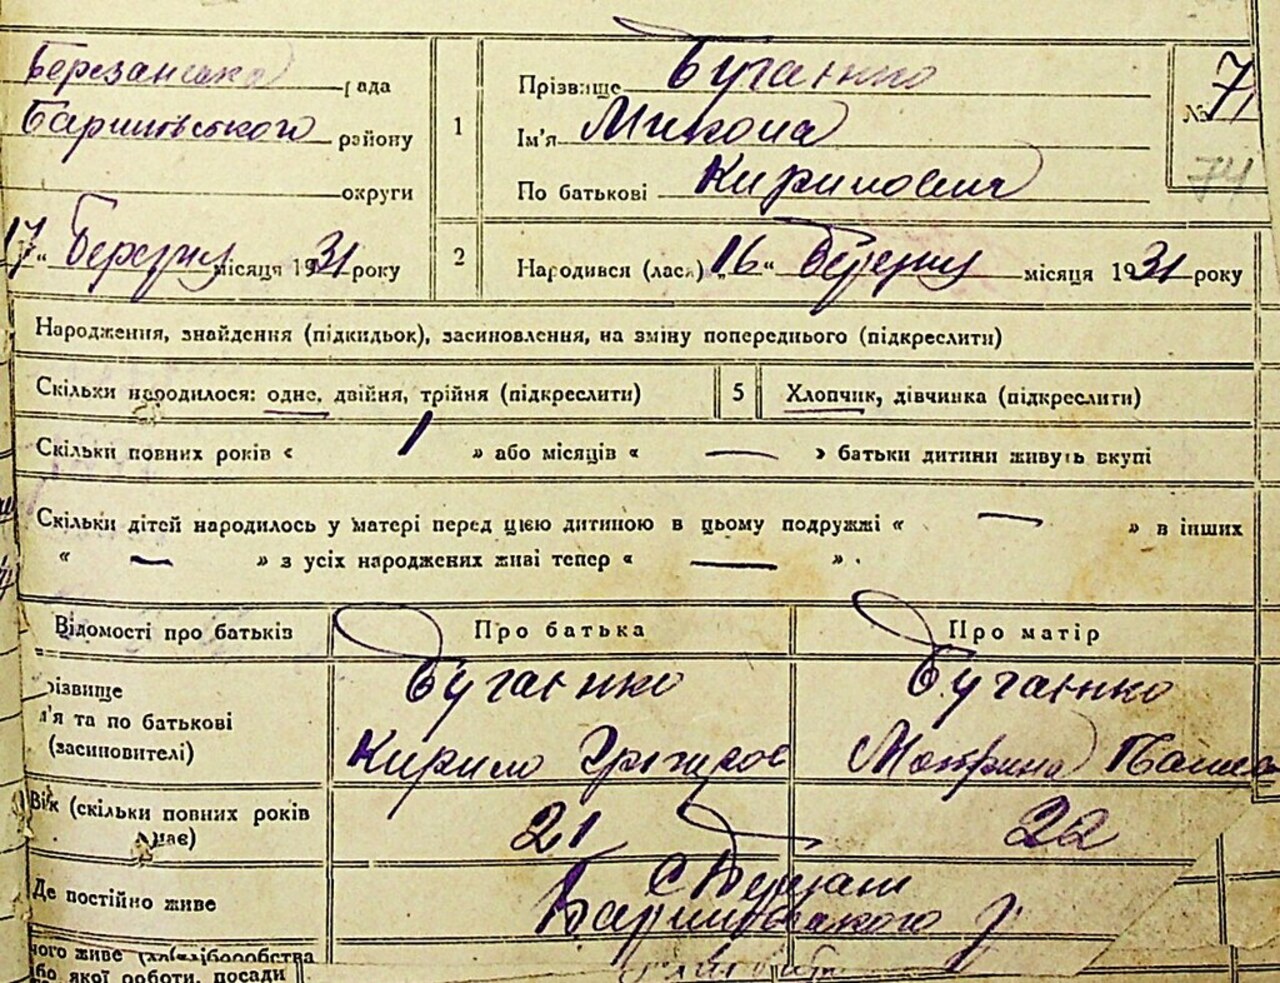 Березанська рада
Баришівського району
округи
17 " Березня місяця 1931 року
1
Прізвище Бугаєнко
Ім'я Микола
По батькові Кирилович
№ 71
74
2
Народився (лася) " 16 " березня місяця 1931 року
Народження, знайдення (підкидьок), засиновлення, на зміну попереднього (підкреслити)
Скільки народилося: одне, двійня, трійня (підкреслити)
5
Хлопчик, дівчинка (підкреслити)
Скільки повних років « 1 » або місяців « — » батьки дитини живуть вкупі
Скільки дітей народилось у матері перед цією дитиною в цьому подружжі « — » в інших
« — » з усіх народжених живі тепер « — » .
Відомості про батьків
Про батька
Про матір
різвище
м'я та по батькові
(засиновителі)
Бугаєнко
Кирило Григоров
Бугаєнко
Мотрина
Вік (скільки повних років
має)
21
22
Де постійно живе
с Березані
Баришівського р.
чого живе
бо якої роботи, посади